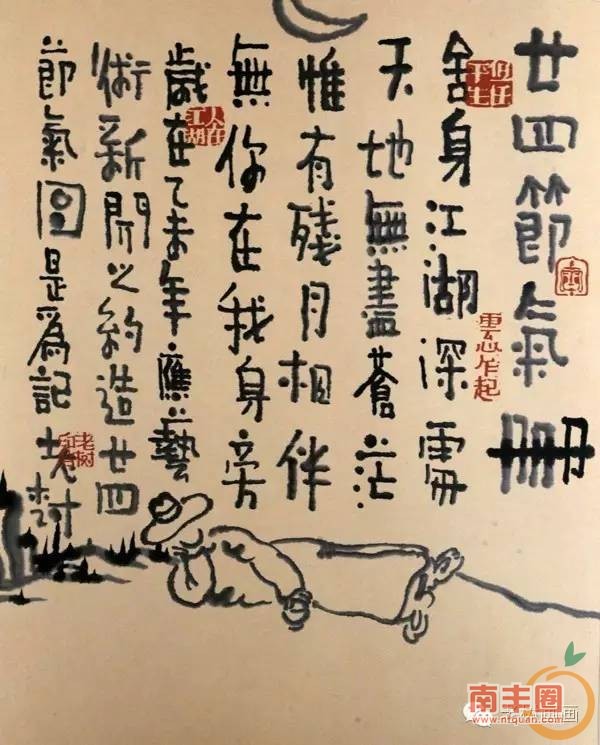 廿四節氣冊
舍身江湖深處
天地無盡蒼茫
惟有殘月相伴
無你在我身旁
歲在乙未年應藝
術新聞之約造廿四
節氣圖是為記 老樹
雲心乍起
人在江湖
老树
南丰圈
www.nfquan.com